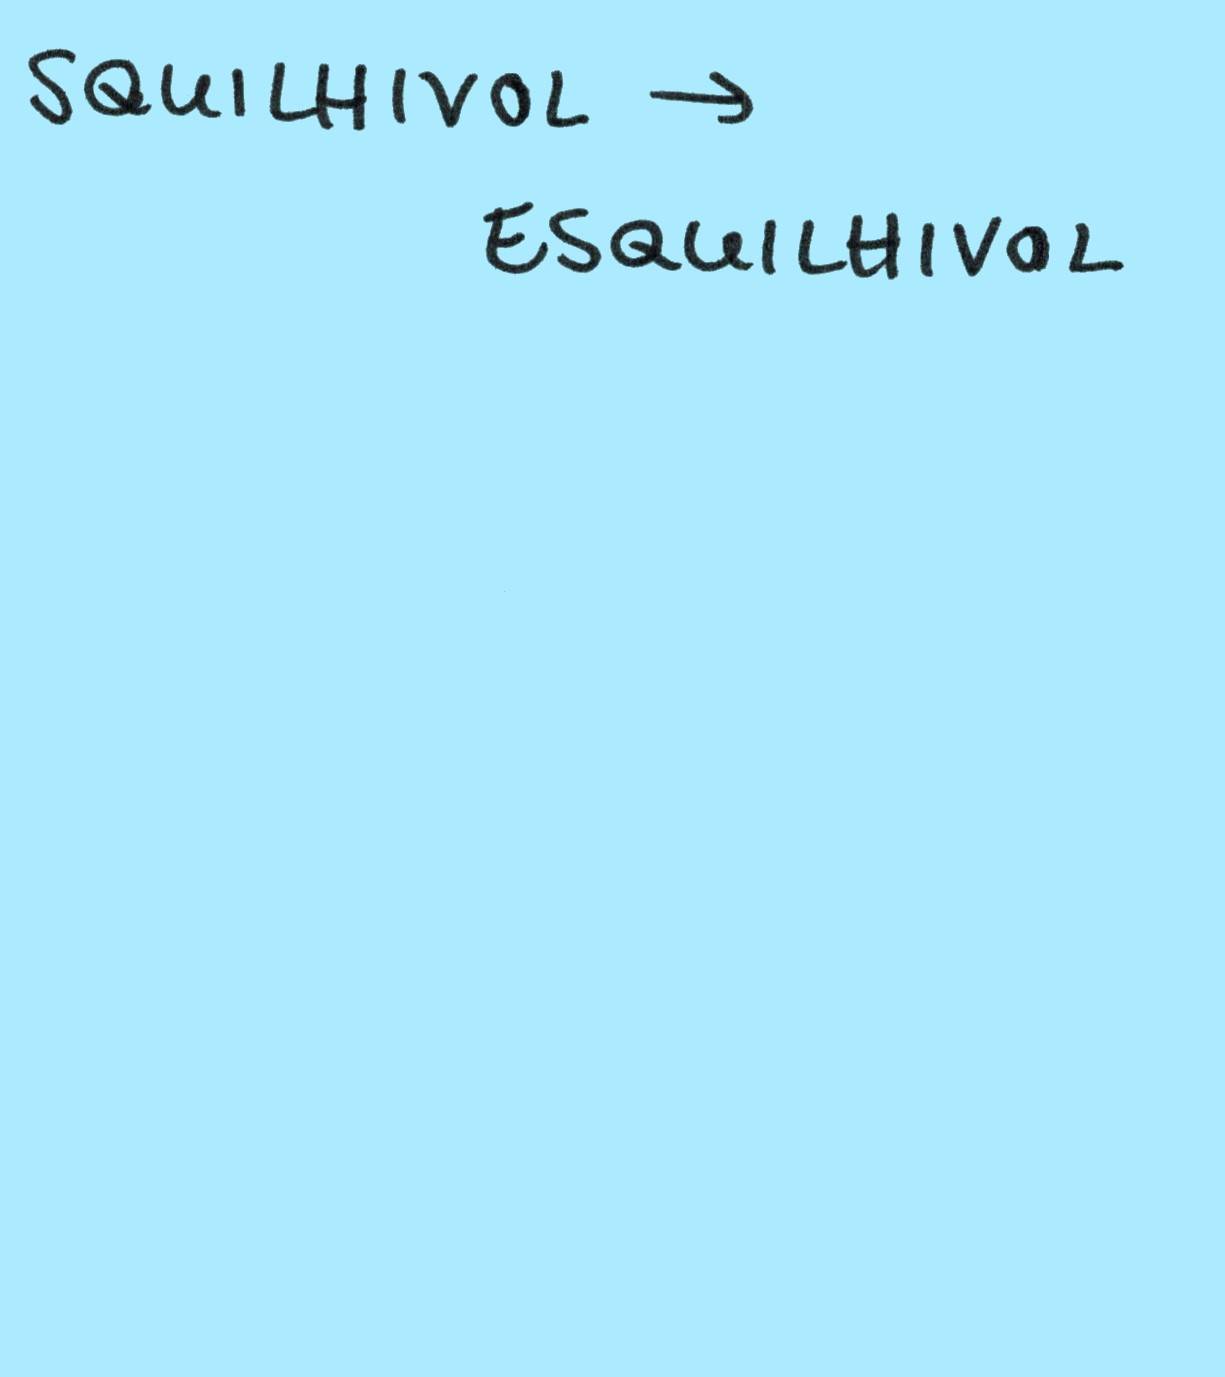 SQUILHIVOL →
ESQUILHIVOL